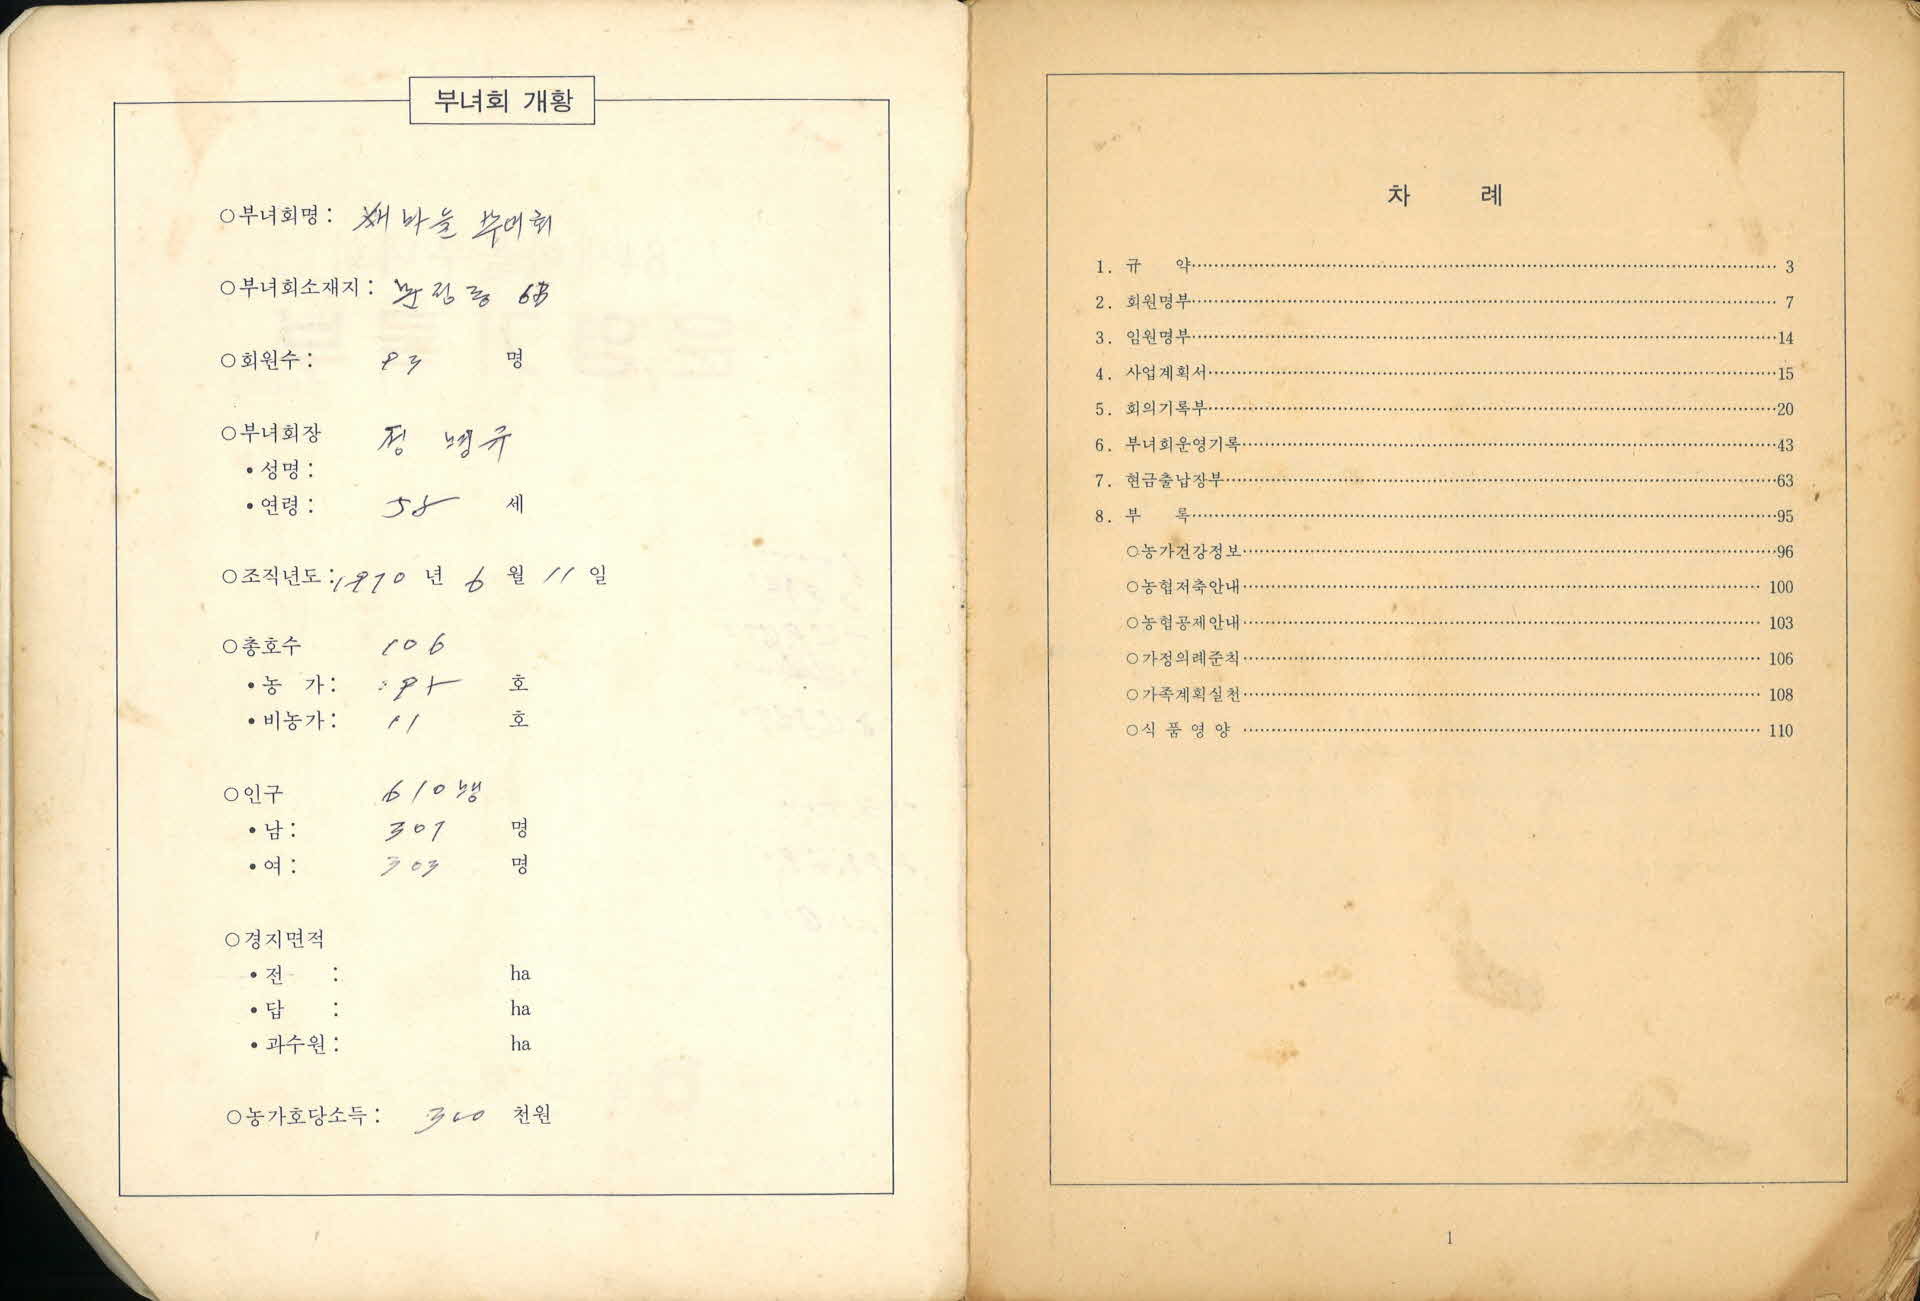 부녀회 개황
○부녀회명: 새마을 부녀회
○부녀회소재지:
○회원수: 명
○부녀회장 정
•성명:
•연령: 58 세
○조직년도: 1970 년 6 월 11 일
○총호수 106
•농 가: 95 호
•비농가: 11 호
○인구 610명
•남: 307 명
•여: 303 명
○경지면적
•전 : ha
•답 : ha
•과수원: ha
○농가호당소득: 300 천원
차 례
1. 규 약 3
2. 회원명부 7
3. 임원명부 14
4. 사업계획서 15
5. 회의기록부 20
6. 부녀회운영기록 43
7. 현금출납장부 63
8. 부 록 95
○농가건강정보 96
○농협저축안내 100
○농협공제안내 103
○가정의례준칙 106
○가족계획실천 108
○식 품 영 양 110
1